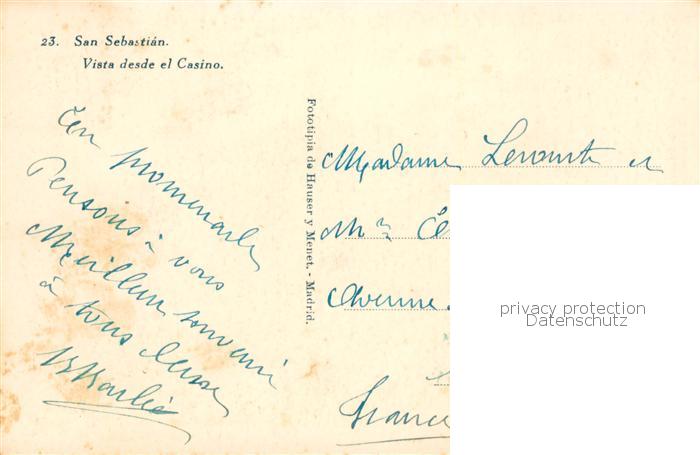 23. San Sebastián.
Vista desde el Casino.
En promenade
Pensons à vous
Meilleur souvenir
à tous deux
Fototipia de Hauser y Menet. - Madrid.
Madame
Avenue
France
privacy protection
Datenschutz